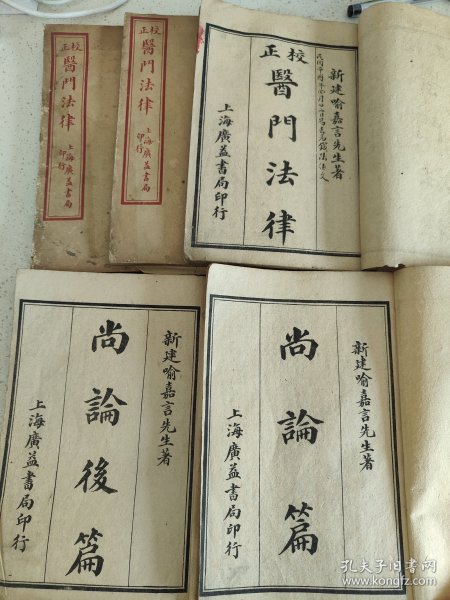 校正
醫門法律
上海廣益書局
印行
校正
醫門法律
上海廣益書局
印行
新建喻嘉言先生著
校正
醫門法律
上海廣益書局印行
新建喻嘉言先生著
尚論後篇
上海廣益書局印行
新建喻嘉言先生著
尚論篇
上海廣益書局印行
孔夫子旧书网
www.kongfz.com